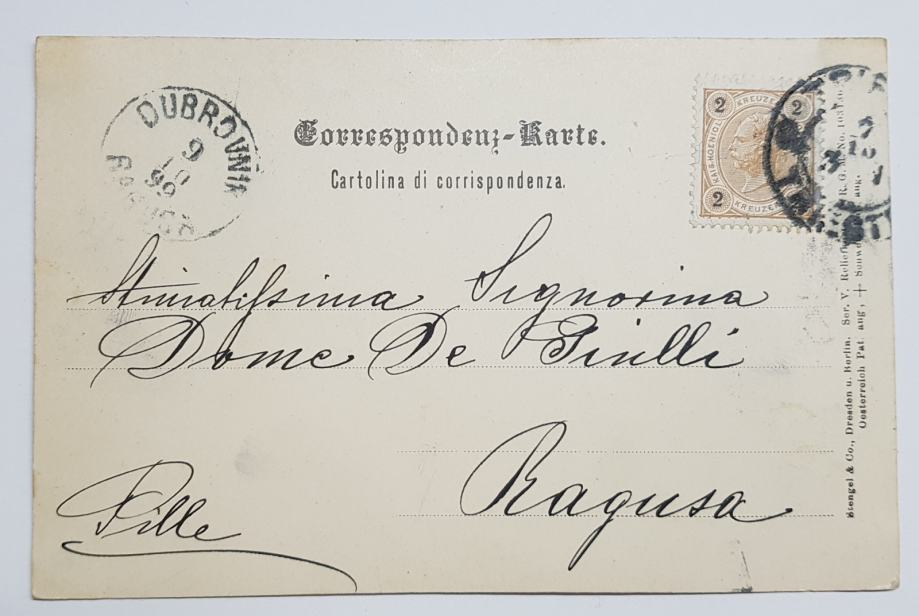 DUBROVNIK
9
10
99
Correspondenz-Karte.
Cartolina di corrispondenza.
2 KREUZER 2
2 KREUZER
Stimatissima Signorina
Dome De Giulli
Ragusa
Pille
Stengel & Co., Dresden u. Berlin. Ser. V. Relief
Oesterreich Pat. ang, + Schwe